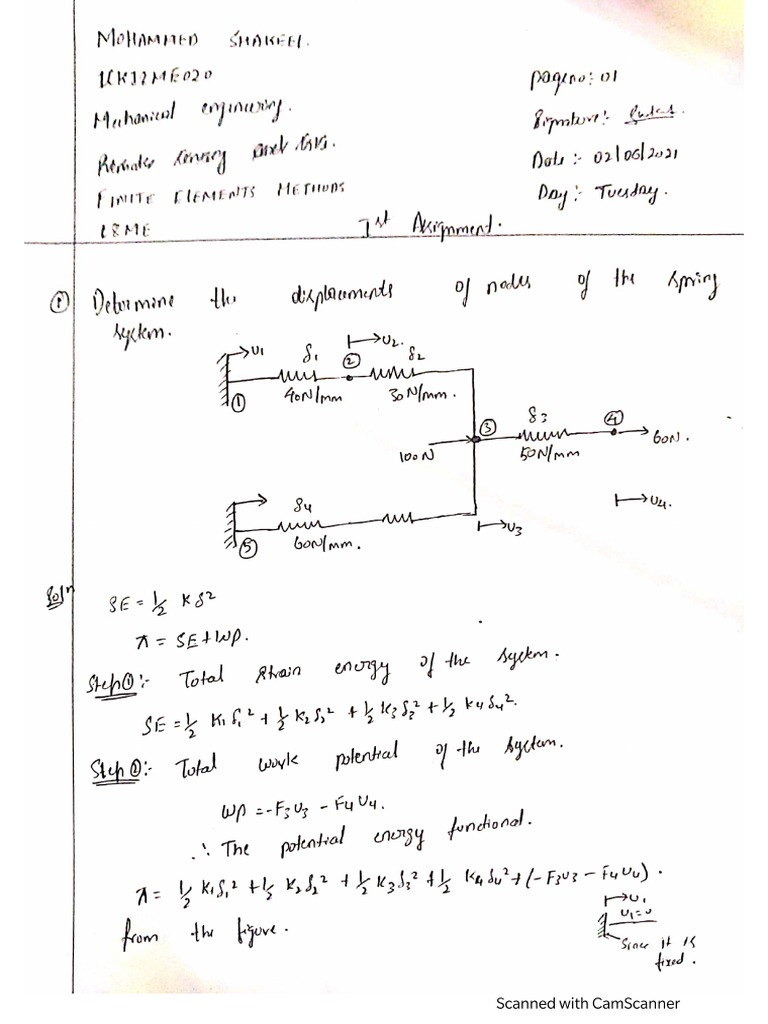 MOHAMMED SHAKEEL.
1CK17ME020
Mechanical engineering.
FINITE ELEMENTS METHODS
18ME
page no: 01
Signature:-
Date :- 02/06/2021
Day :- Tuesday.
1st Assignment.
① Determine the displacements of nodes of the spring
system.
U1 δ1 ② U2. δ2
① 40N/mm 30N/mm.
③ δ3 ④
100N 50N/mm 60N.
U4.
δ4
⑤ 60N/mm. U3
Soln SE = 1/2 K δ²
π = SE + WP.
Step①:- Total strain energy of the system.
SE = 1/2 K1 δ1² + 1/2 K2 δ2² + 1/2 K3 δ3² + 1/2 K4 δ4².
Step②:- Total work potential of the system.
WP = -F3U3 - F4U4.
∴ The potential energy functional.
π = 1/2 K1 δ1² + 1/2 K2 δ2² + 1/2 K3 δ3² + 1/2 K4 δ4² + (-F3U3 - F4U4).
from the figure.
U1
U1=0
Since it is
fixed.
Scanned with CamScanner